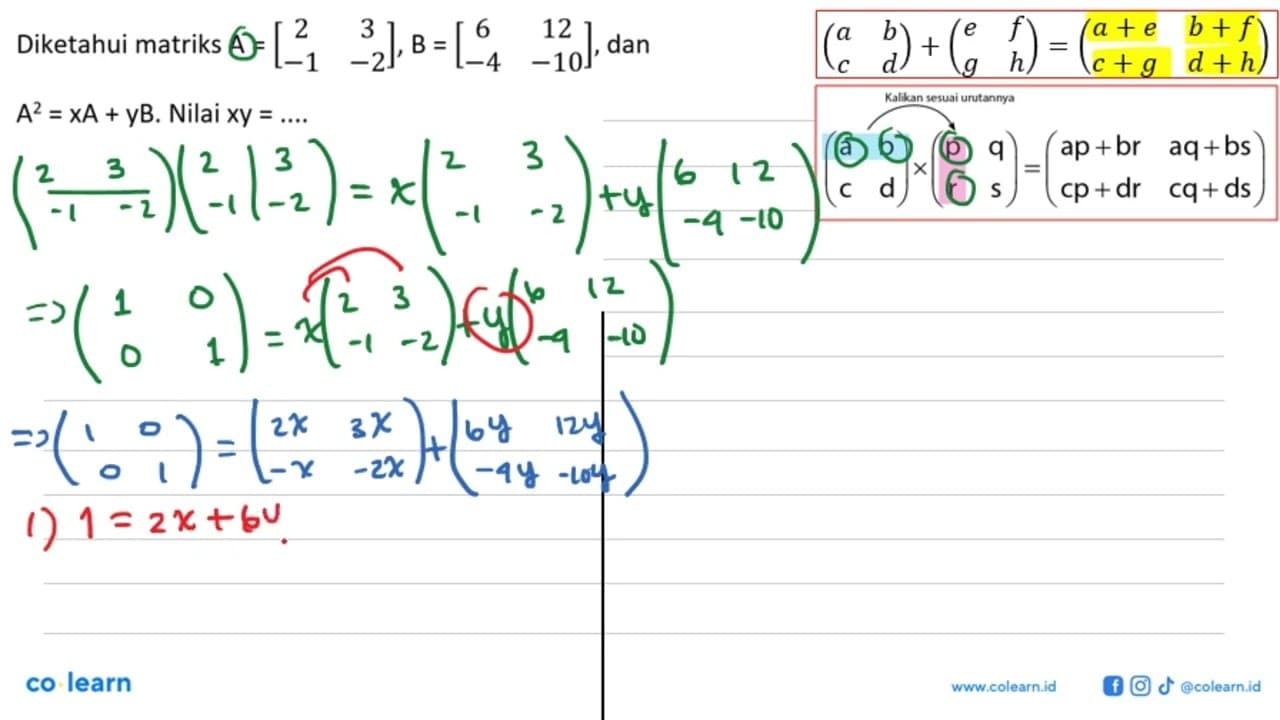 Diketahui matriks A = [2 3; -1 -2], B = [6 12; -4 -10], dan
A² = xA + yB. Nilai xy = ....
(a b; c d) + (e f; g h) = (a + e b + f; c + g d + h)
Kalikan sesuai urutannya
(a b; c d) × (p q; r s) = (ap + br aq + bs; cp + dr cq + ds)
(2 3; -1 -2)(2 3; -1 -2) = x(2 3; -1 -2) + y(6 12; -4 -10)
=> (1 0; 0 1) = x(2 3; -1 -2) + y(6 12; -4 -10)
=> (1 0; 0 1) = (2x 3x; -x -2x) + (6y 12y; -4y -10y)
1) 1 = 2x + 6y
co learn
www.colearn.id
@colearn.id